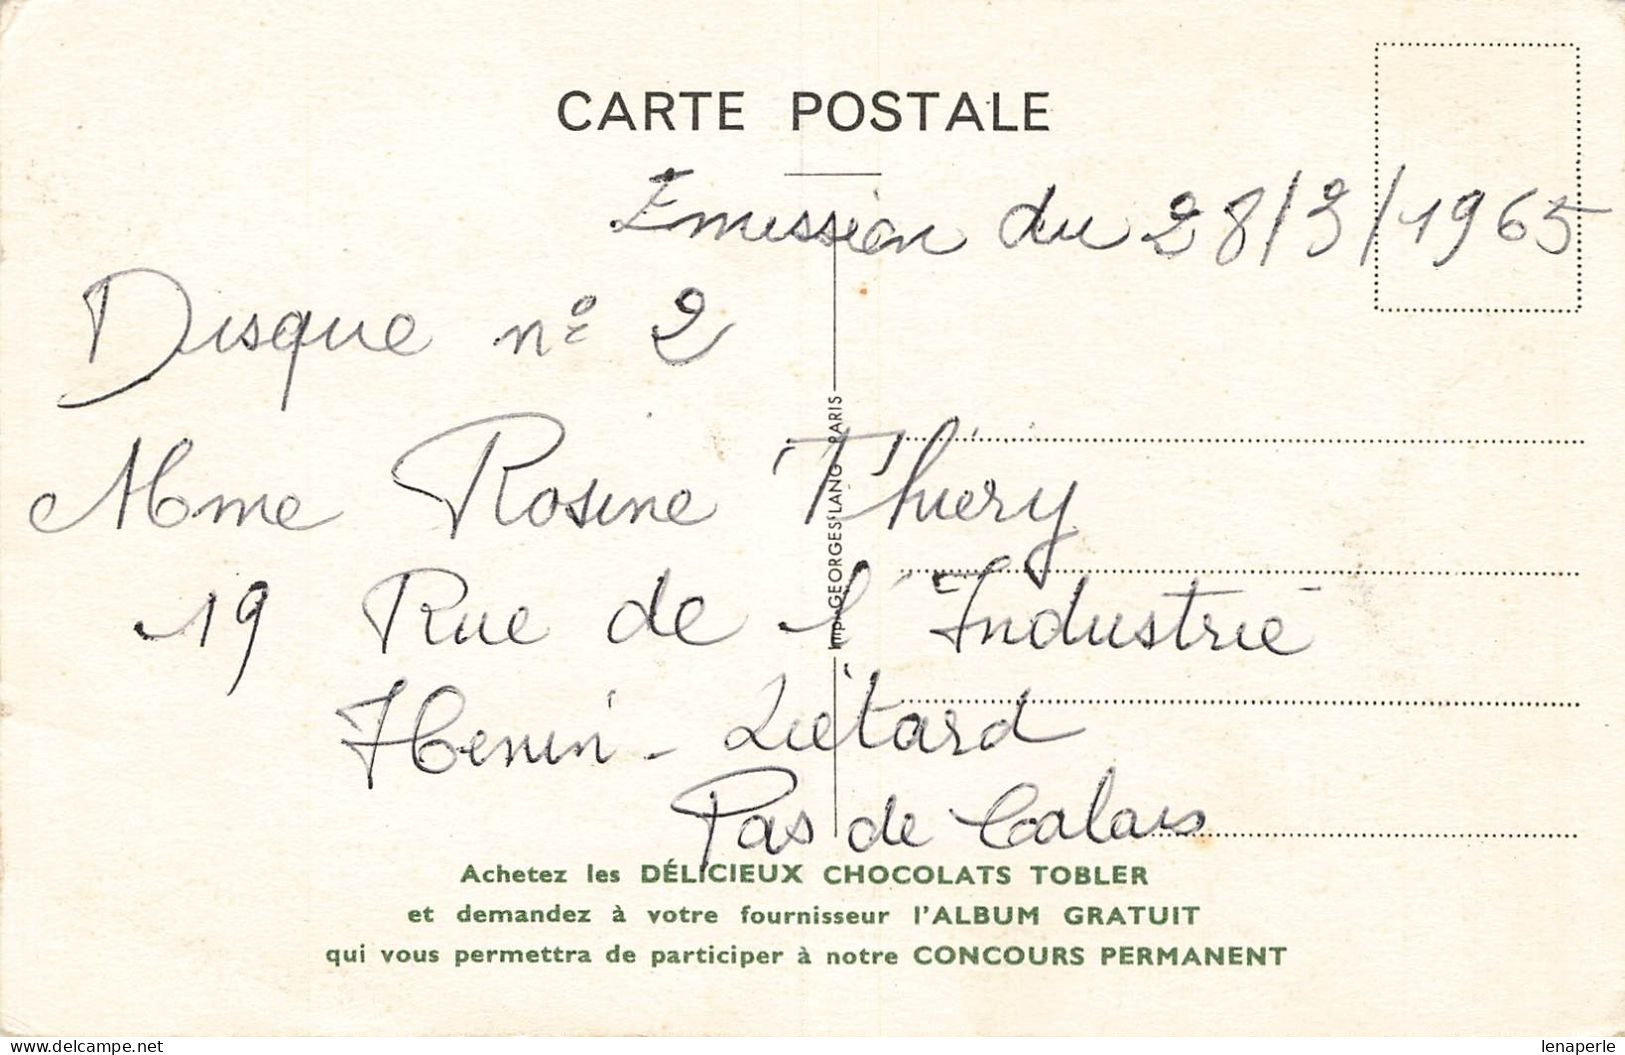 CARTE POSTALE
Emission du 28/3/1965
Disque n° 2
Mme Rosine Thiery
19 Rue de l'Industrie
Henin-Liétard
Pas de Calais
Imp. GEORGES LANG - PARIS
Achetez les DÉLICIEUX CHOCOLATS TOBLER
et demandez à votre fournisseur l'ALBUM GRATUIT
qui vous permettra de participer à notre CONCOURS PERMANENT
www.delcampe.net
lenaperle